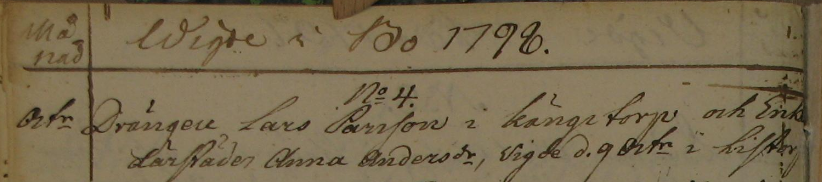 Må
nad
Wigde i Bo 1798.
No 4.
Octr Drängen Lars Parsson i Långetorp och Enk
därstädes Anna Andersdr, Vigde d. 9 Octr i Listorp